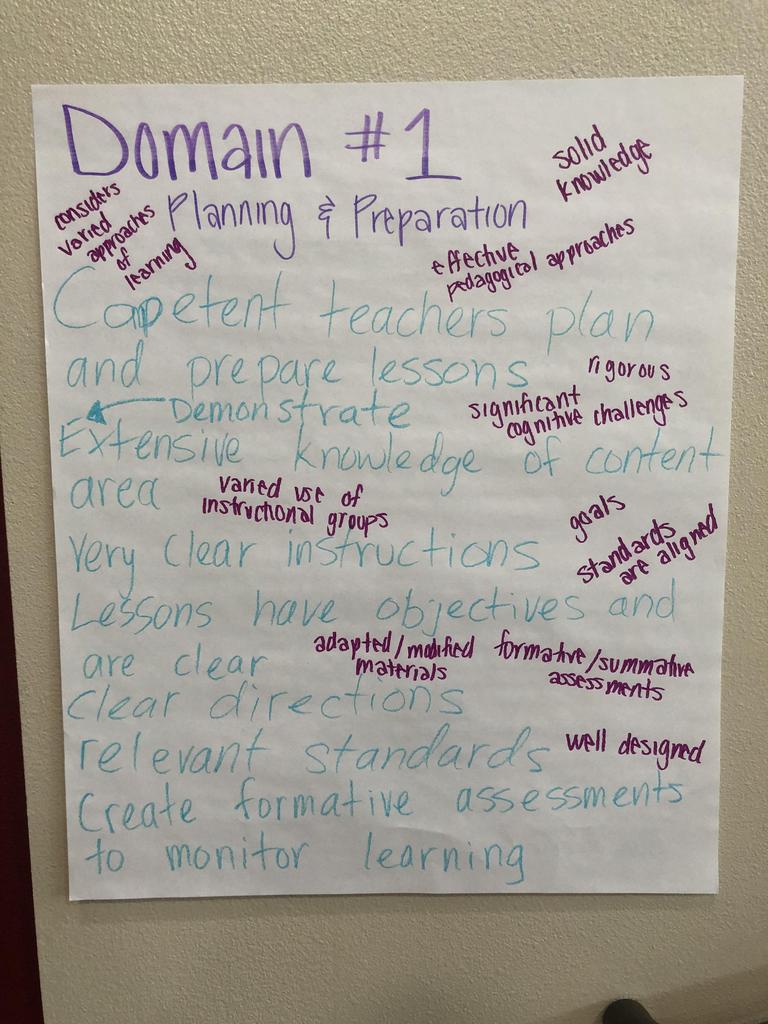 Domain #1
solid
knowledge
considers
varied
approaches
of
learning
Planning & Preparation
effective
pedagogical approaches
Capetent teachers plan
and prepare lessons
rigorous
Demonstrate
significant
cognitive challenges
Extensive knowledge of content
area
varied use of
instructional groups
goals
standards
are aligned
Very clear instructions
Lessons have objectives and
are clear
adapted/modified
materials
formative/summative
assessments
clear directions
relevant standards
well designed
Create formative assessments
to monitor learning